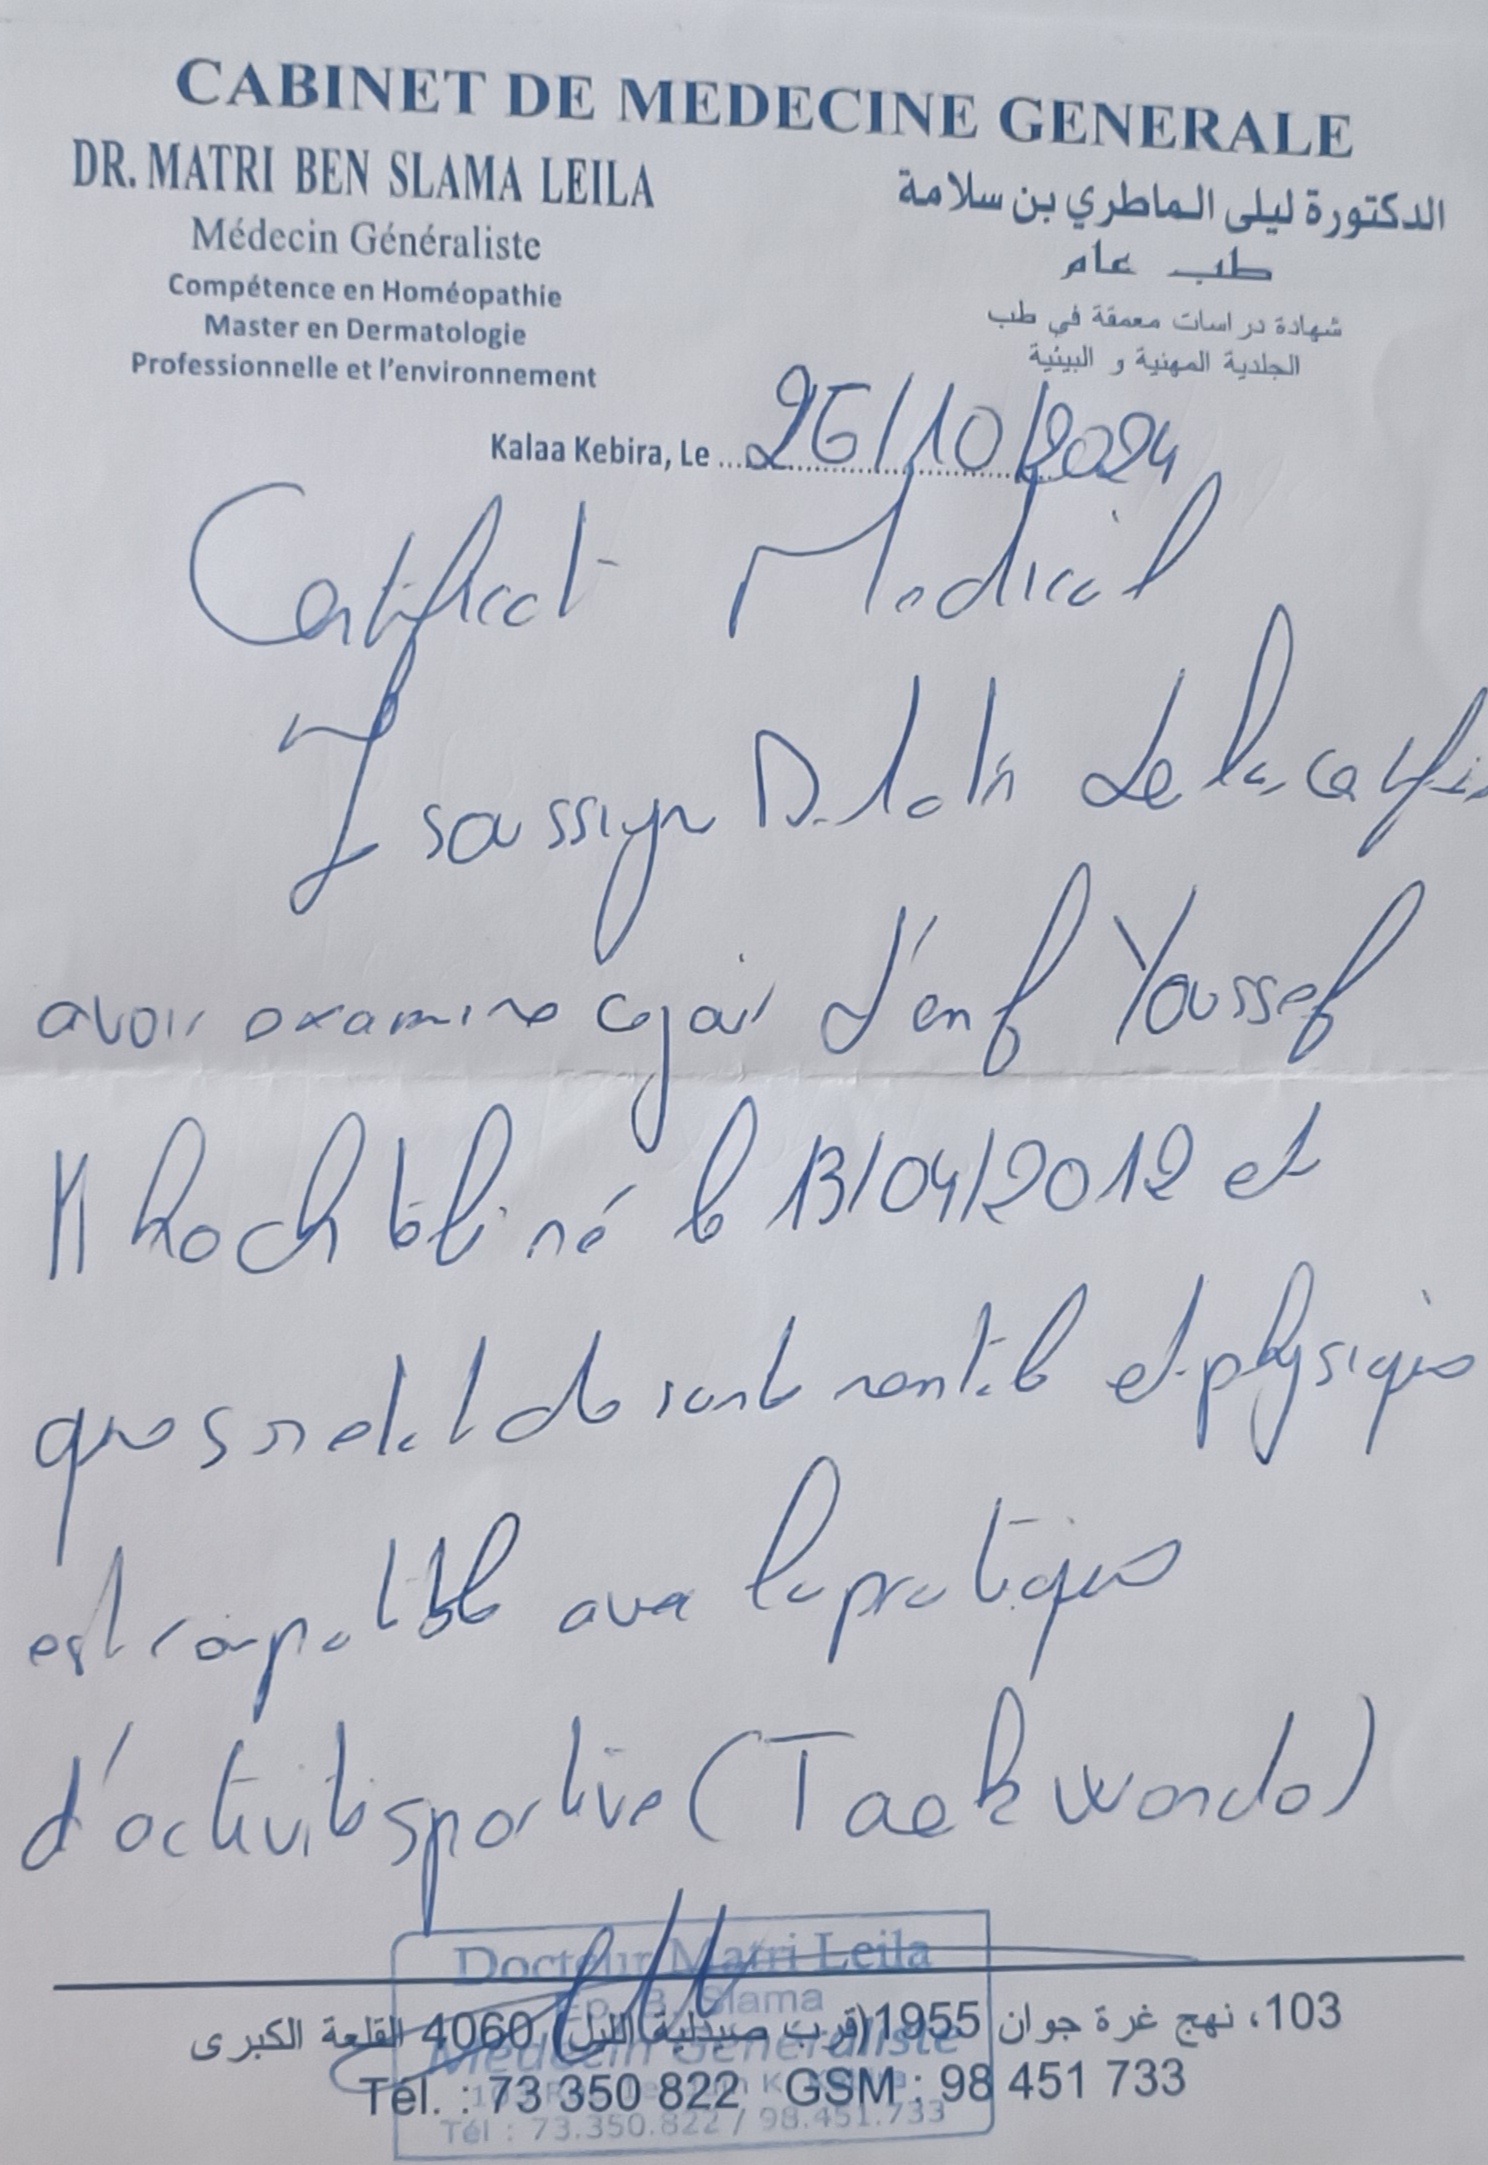 CABINET DE MEDECINE GENERALE
DR. MATRI BEN SLAMA LEILA
Médecin Généraliste
Compétence en Homéopathie
Master en Dermatologie
Professionnelle et l'environnement
الدكتورة ليلى الماطري بن سلامة
طب عام
شهادة دراسات معمقة في طب
الجلدية المهنية و البيئية
Kalaa Kebira, Le 26/10/2024
Certificat Medical
Je soussigne certifie
avoir examine ce jour l'enf Youssef
né le 13/04/2012 et
que son etat de sante mentale et physique
est compatible avec la pratique
d'activite sportive (Taekwondo)
Docteur Matri Leila
Ep. B. Slama
Médecin Généraliste
Tél : 73.350.822 / 98.451.733
103، نهج غرة جوان 1955(قرب صيدلية الليل) 4060 القلعة الكبرى
Tél. : 73 350 822 GSM : 98 451 733